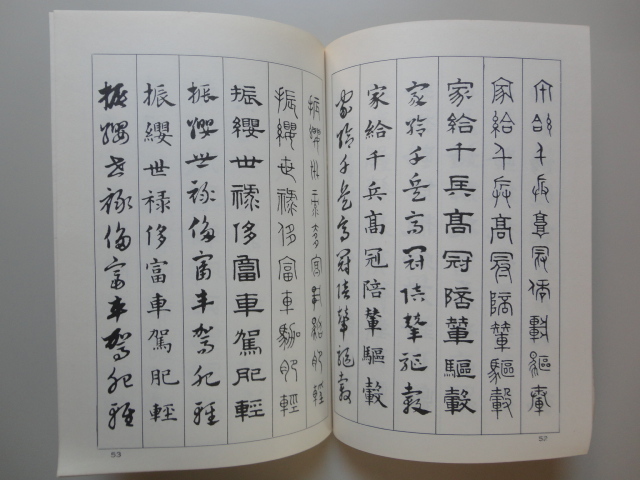 家給千兵高冠陪輦驅轂
家給千兵髙冠陪輦驅轂
家給千兵髙冠陪輦驅轂
家給千兵高冠陪輦驅轂
家給千兵髙冠陪輦驅轂
家給千兵高冠陪輦驅轂
52
振纓世祿侈富車駕肥輕
振纓世祿侈富車駕肥輕
振纓世祿侈富車駕肥輕
振纓世祿侈富車駕肥輕
振纓世禄侈富車駕肥軽
振纓世祿侈富車駕肥輕
53